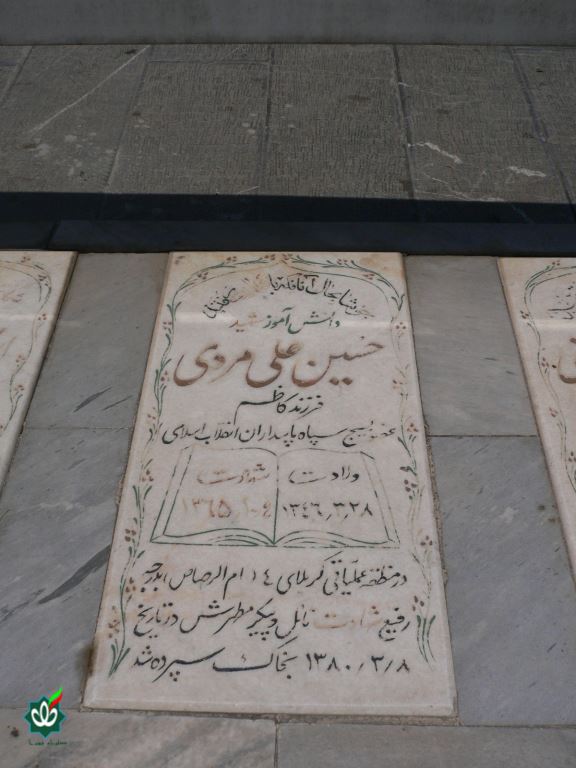 دانش آموز شهید
حسین علی مردی
فرزند کاظم
عضو بسیج سپاه پاسداران انقلاب اسلامی
ولادت
۱۳۴۶٫۳٫۲۸
شهادت
در منطقه عملیاتی کربلای ۴ ام الرصاص بدرجه
رفیع شهادت نائل و پیکر مطهرش در تاریخ
۱۳۸۰/۳/۸ بخاک سپرده شد